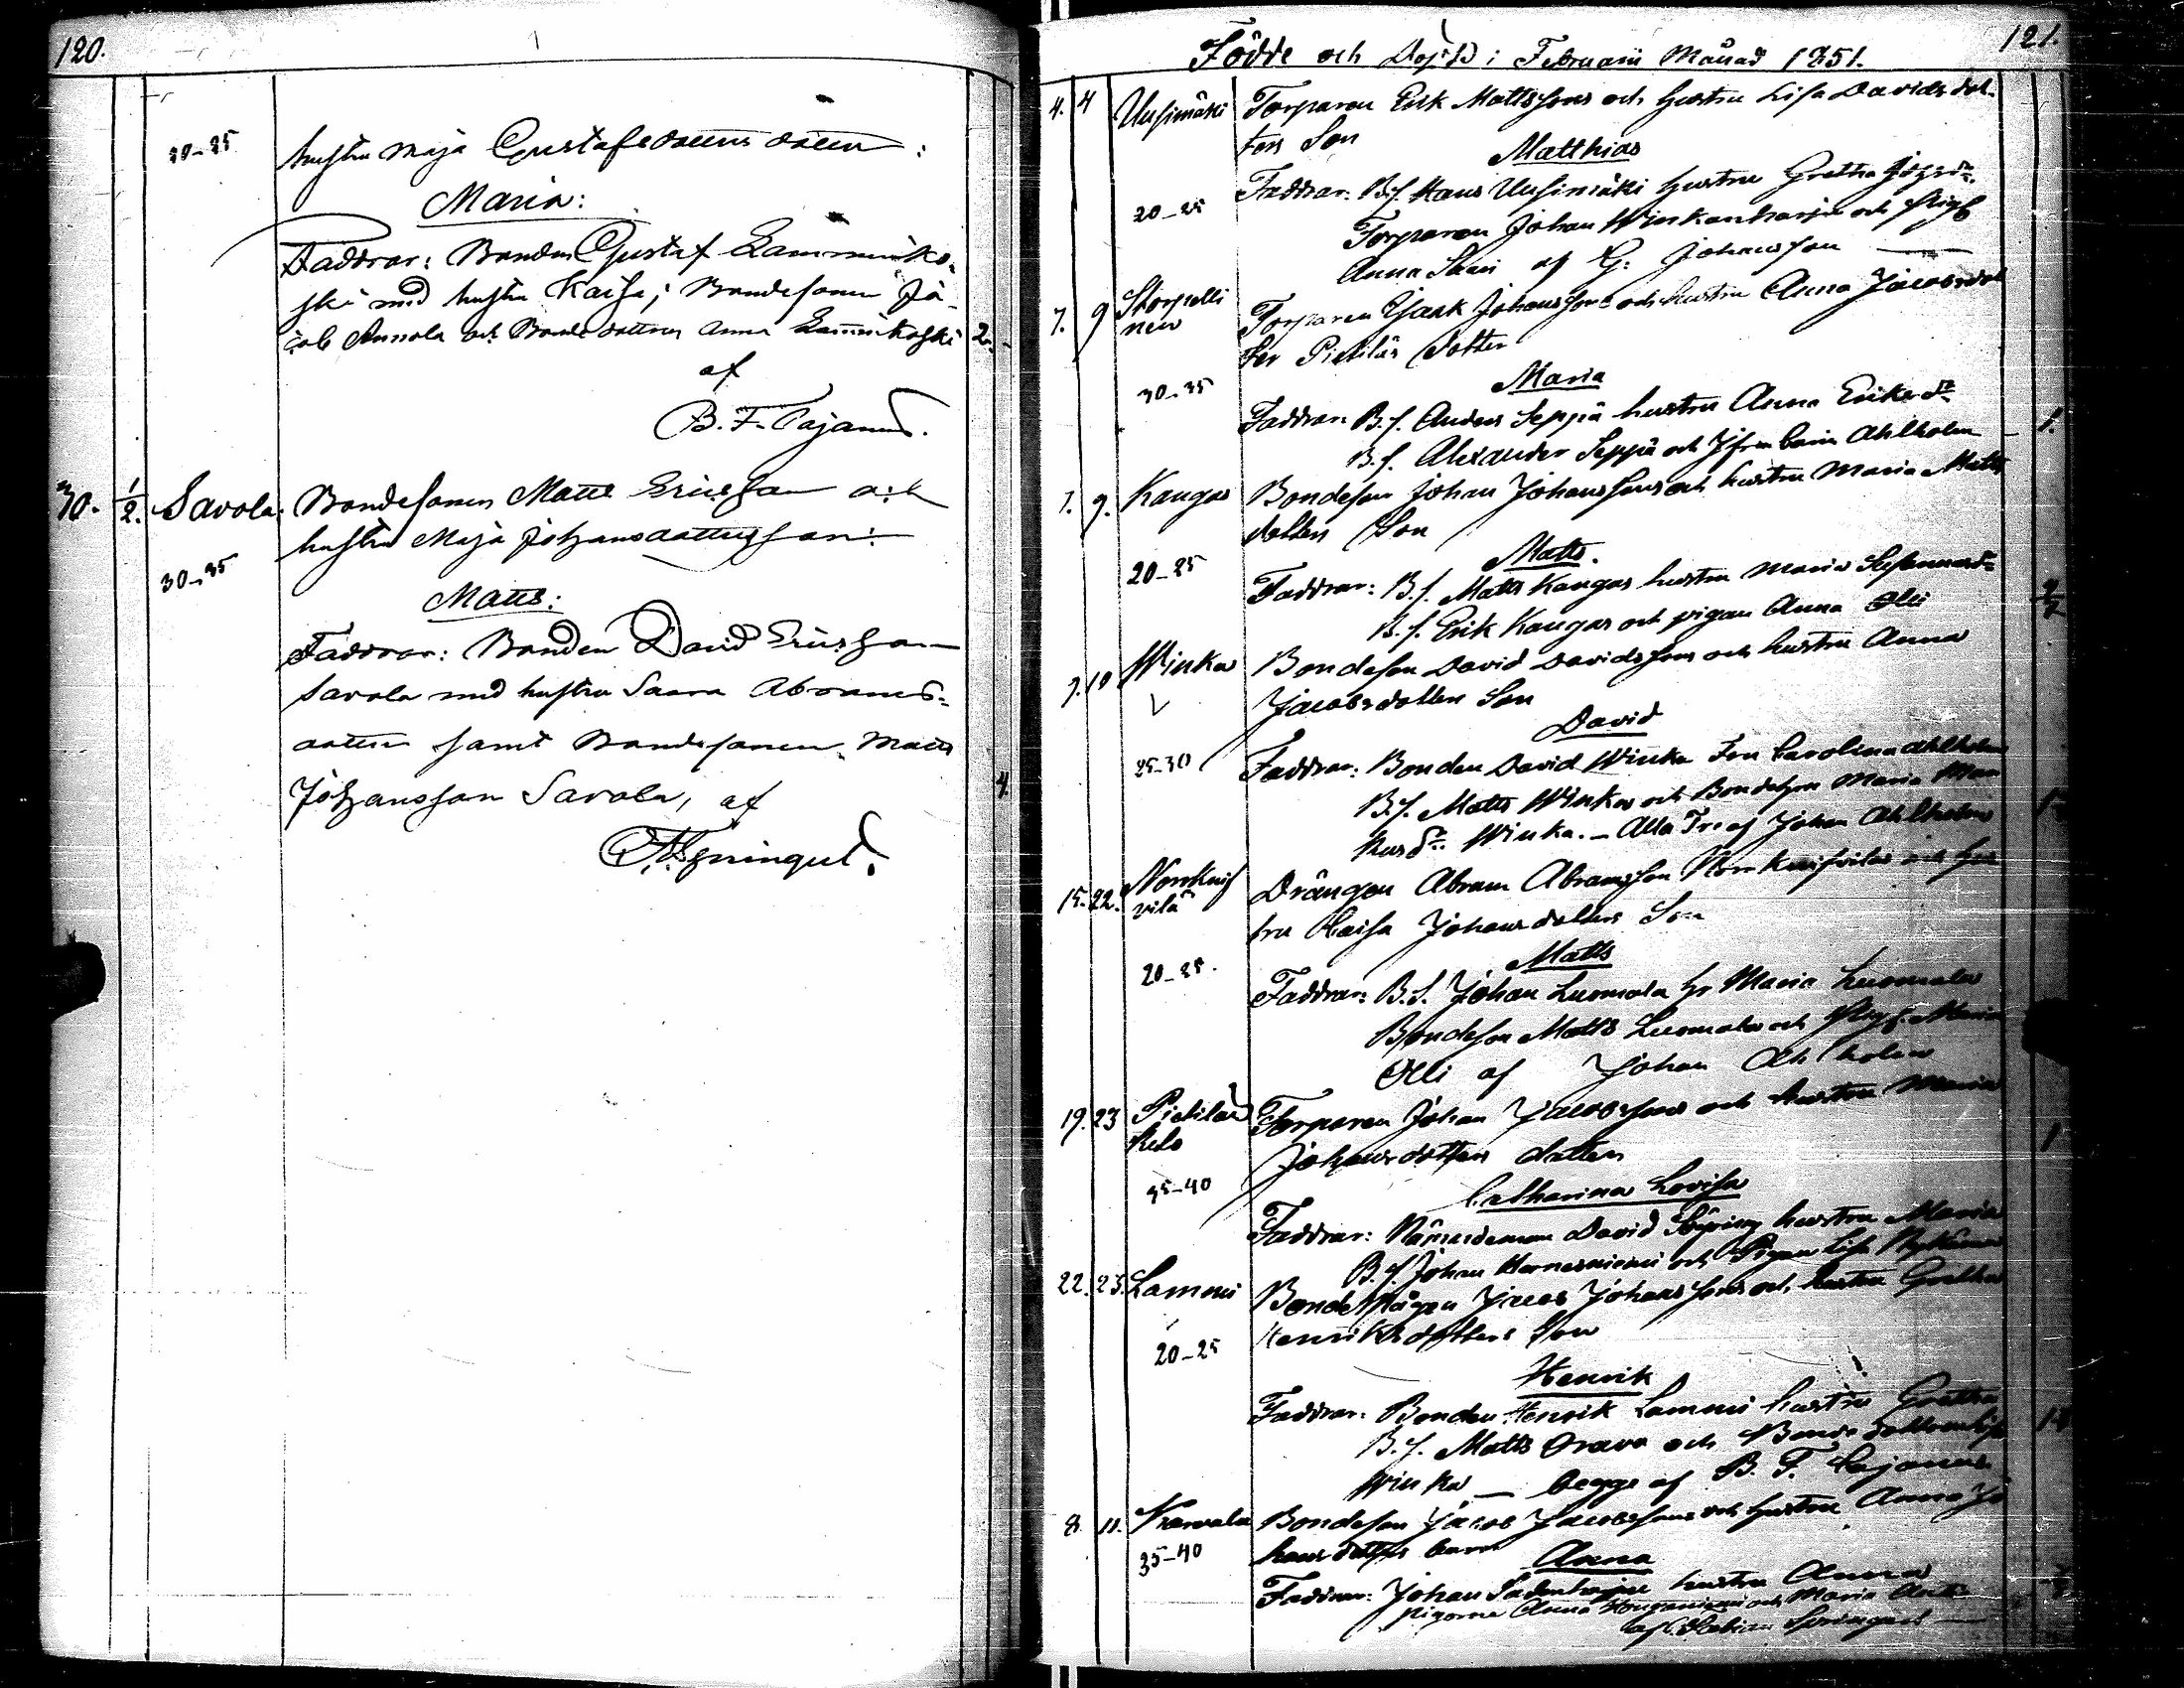 120.
30-35 hustru Maja Gustafsdotters dotter:
Maria:
Faddrar: Bonden Gustaf Lamminko-
ski med hustru Kaisa; Bondesonen Ja-
cob Annola och Bondedottren Anna Lamminkoski 2.
af
B. F. Cajanus.
30. 1/2. Savola: Bondesonen Matts Ericsson och
hustru Maja Johansdotters son:
30-35
Matts:
Faddrar: Bonden David Ericsson
Savola med hustru Saara Abrams-
dotter samt Bondesonen Matts
Johansson Savola, af 4.
121.
Födde och Döpte i Februarii Månad 1851.
4. 4 Uusimäki Torparen Erik Mattssons och hustru Lisa Davidsdot-
ters Son
Matthias
20-25 Faddrar: B.s. Hans Uusimäki hustru Gretha
Torparen Johan Winkanharju och Pig
Anna af G: Johansson
7. 9 Torparen Isaak Johanssons och hustru Anna Jacobsdot
ter Pietiläs Dotter
Maria
30-35 Faddrar: B.s. Anders Seppä hustru Anna Eriksdr
B.s. Alexander Seppä och Jfru Carin Ahlholm 1.
7. 9. Kangas Bondeson Johan Johanssons och hustru Maria Matts
dotters Son
Matts.
20-25 Faddrar: B.s. Matts Kangas hustru Maria
B.s. Erik Kangas och pigan Anna Olli
7. 10 Winka Bondeson David Davidssons och hustru Anna
Jacobsdotters Son
David
25-30 Faddrar: Bonden David Winka Fru Carolina Ahlholm
B.s. Matts Winka och Bondehn Maria Mar
kusdr Winka. - Alla Tre af Johan Ahlholm
15. 22. Drängen Abram Abramsson och hus
tru Caisa Johansdotters Son
Matts
20-25. Faddrar: B.S. Johan Luomala h. Maria Luomala
Bondeson Matts Luomala och Pig. Maria
Olli af Johan Ahlholm
19. 23 Torparen Johan Jacobssons och hustru Maria
Johansdotters dotter 1
35-40
Catharina Lovisa
Faddrar: Nämndeman David hustru Maria
B.S. Johan Hernesniemi och Pigan Lisa
22. 23. Lammi Bondemågen Jacob Johanssons och hustru Gretha
20-25 Henriksdotters Son
Henrik
Faddrar: Bonden Henrik Lammi hustru Gretha
B.s. Matts Orava och Bonde dottren Lisa
Winka - begge af B. F. Cajanus.
8 11. Bondeson Jacob Jacobssons och hustru Anna Jo
35-40 hansdotters barn Anna
Faddrar: Johan hustru Anna
pigorna Anna och Maria
af